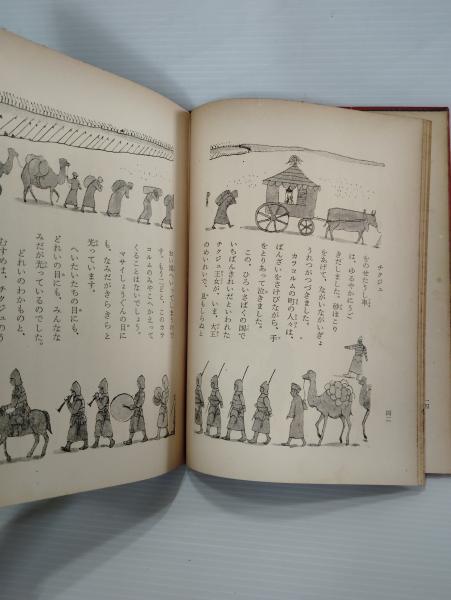 チクジュ
をのせた牛車
は、ゆるやかにうご
きだしました。砂ほこり
をあげて、ながいながいぎょ
うれつがつづきました。
カラコルムの町の人々は、
ばんざいをさけびながら、手
をとりあって泣きました。
この、ひろいさばくの国で
いちばんきれいだといわれた
チクジュ王女が、いま、大王
のめいれいで、見もしらぬと
四二
おい国へいってしまうので
す。もう二どと、このカラ
コルムのみやこへかえって
くることはないでしょう。
マサイしょうぐんの目に
も、なみだがきらきらと
光っています。
へいたいたちの目にも、
どれいの目にも、みんなな
みだが光っているのでした。
どれいのわかものと、
むすめは、チクジュのう